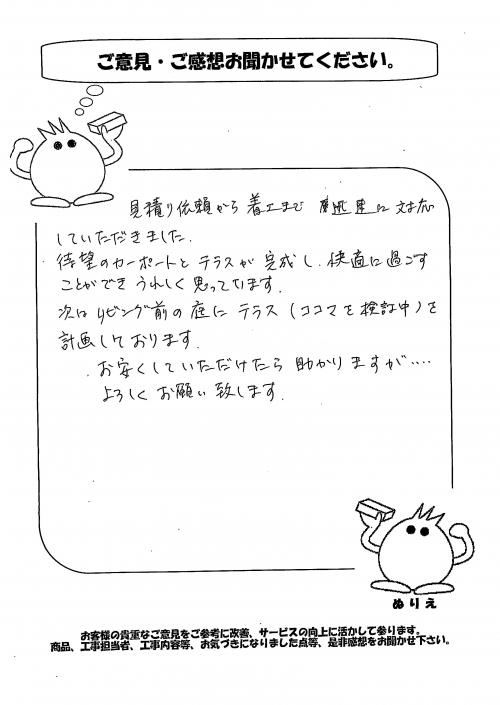 ご意見・ご感想お聞かせてください。
見積り依頼から着工まで 迅速に対応
していただきました。
待望のカーポートとテラスが完成し、快適に過ごす
ことができうれしく思っています。
次はリビング前の庭にテラス(ココマを検討中)を
計画しております。
お安くしていただけたら助かりますが‥‥
よろしくお願い致します。
ぬりえ
お客様の貴重なご意見をご参考に改善、サービスの向上に活かして参ります。
商品、工事担当者、工事内容等、お気づきになりました点等、是非感想をお聞かせ下さい。